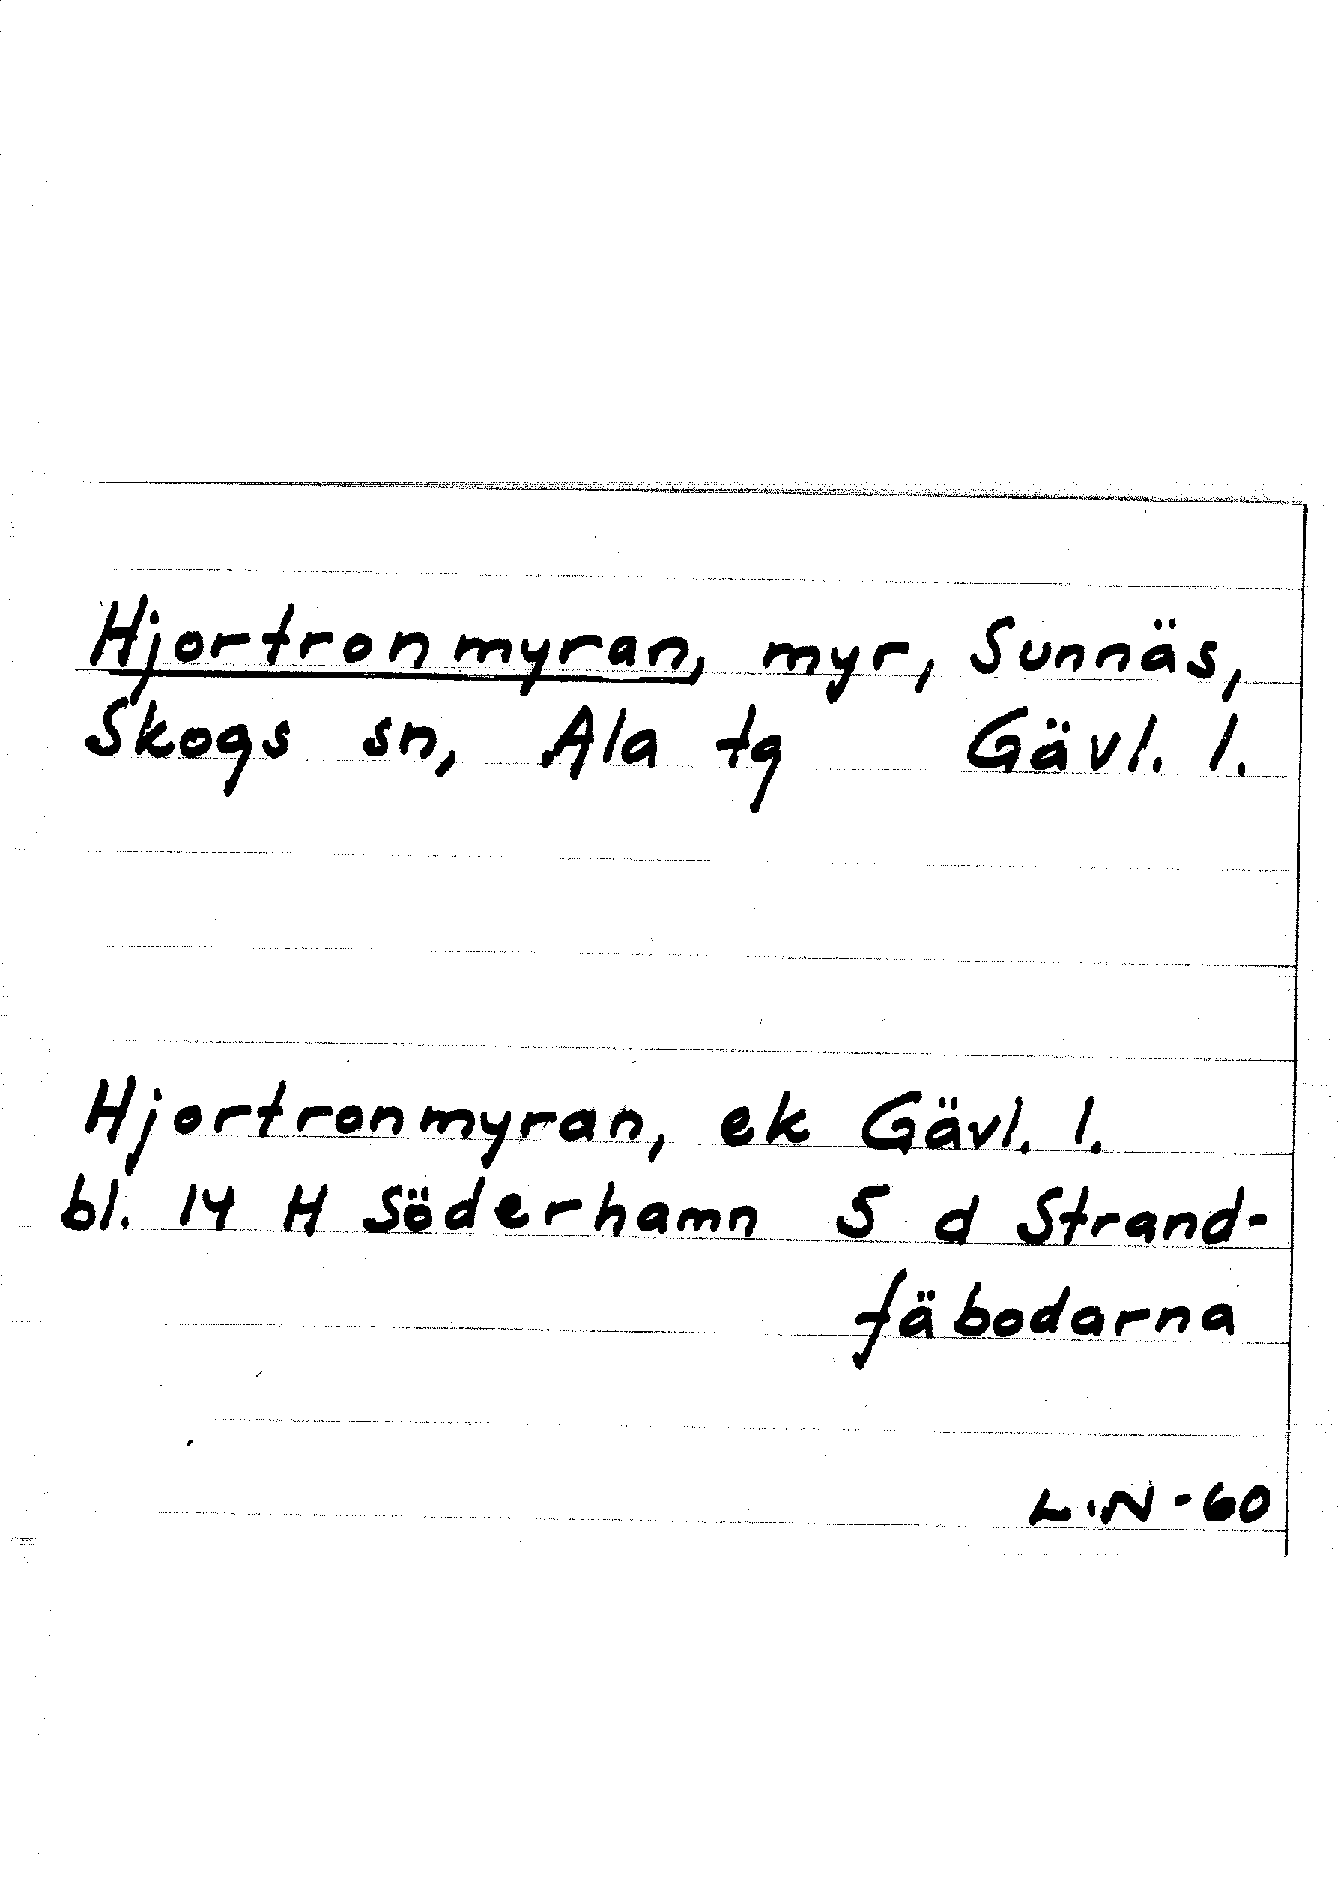 Hjortronmyran, myr, Sunnäs,
Skogs sn, Ala tg Gävl. l.
Hjortronmyran, ek Gävl. l.
bl. 14 H Söderhamn 5 d Strand-
fäbodarna
L.N-60